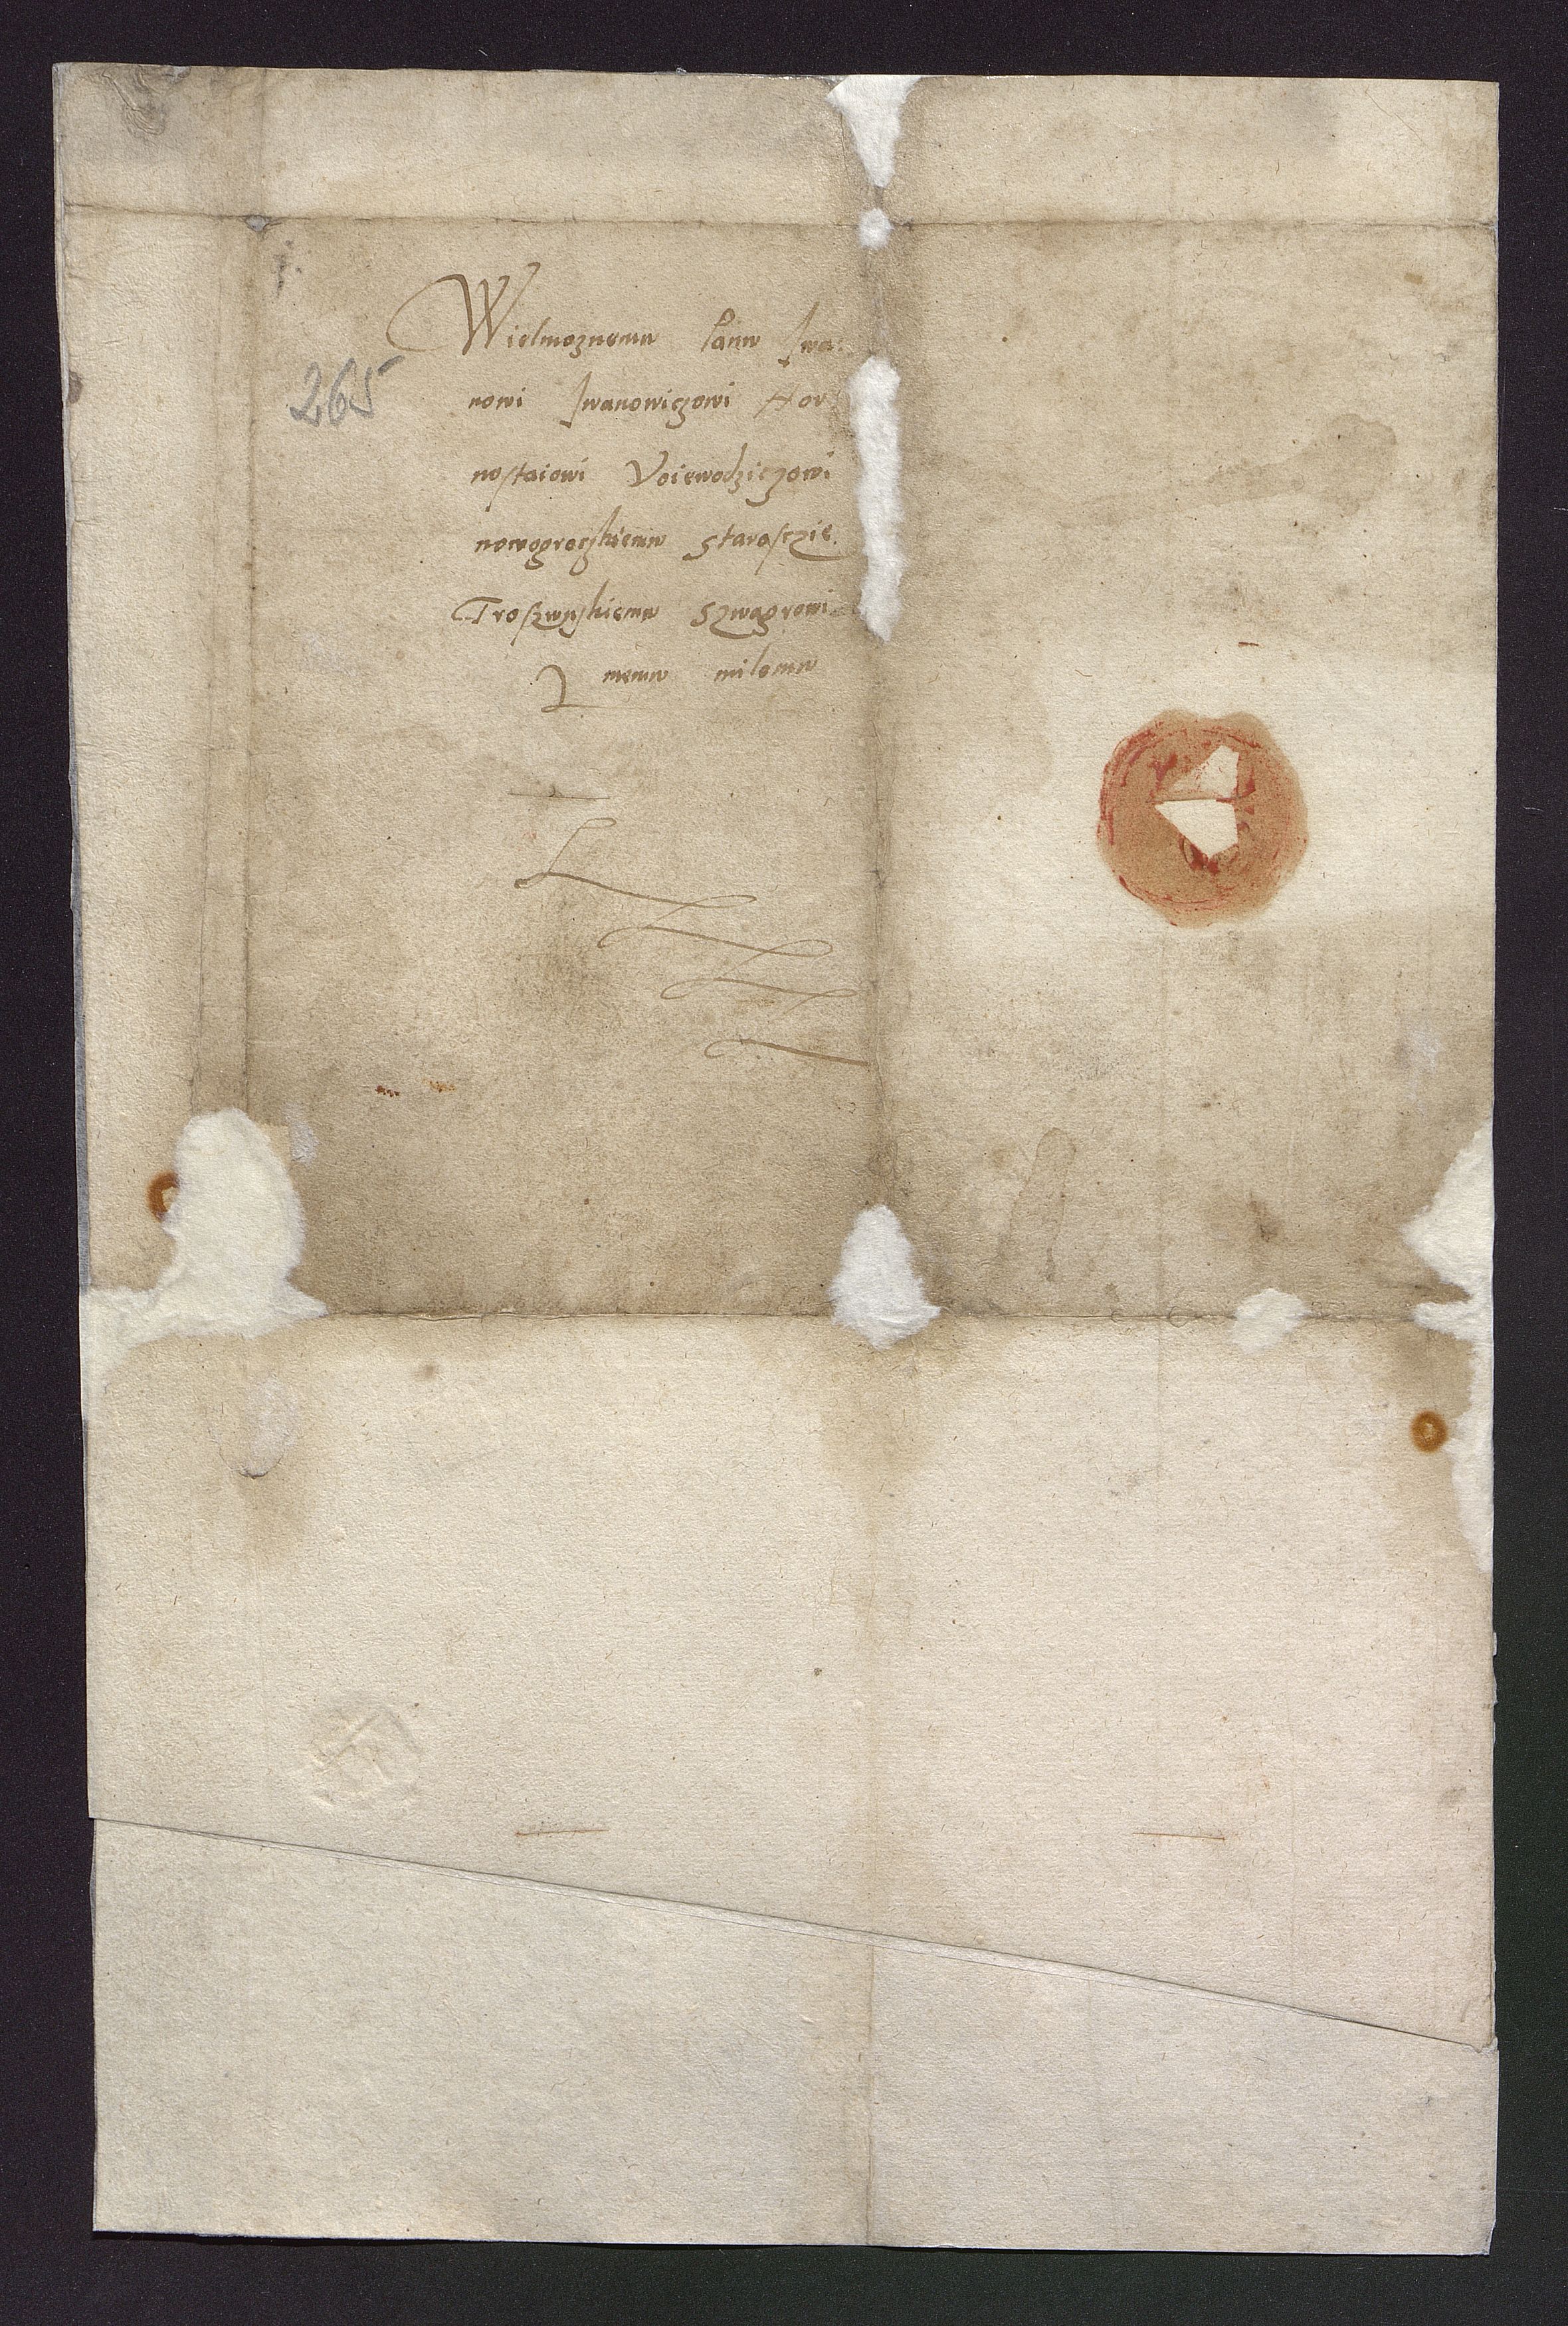 Wielmoznemu Panu Iwa:
265
nowi Iwanowiczowi Hor
nostaiowi Voiewodziczowi
nowogroczkiemu Starosczie.
Szwagrowi
memu milemu